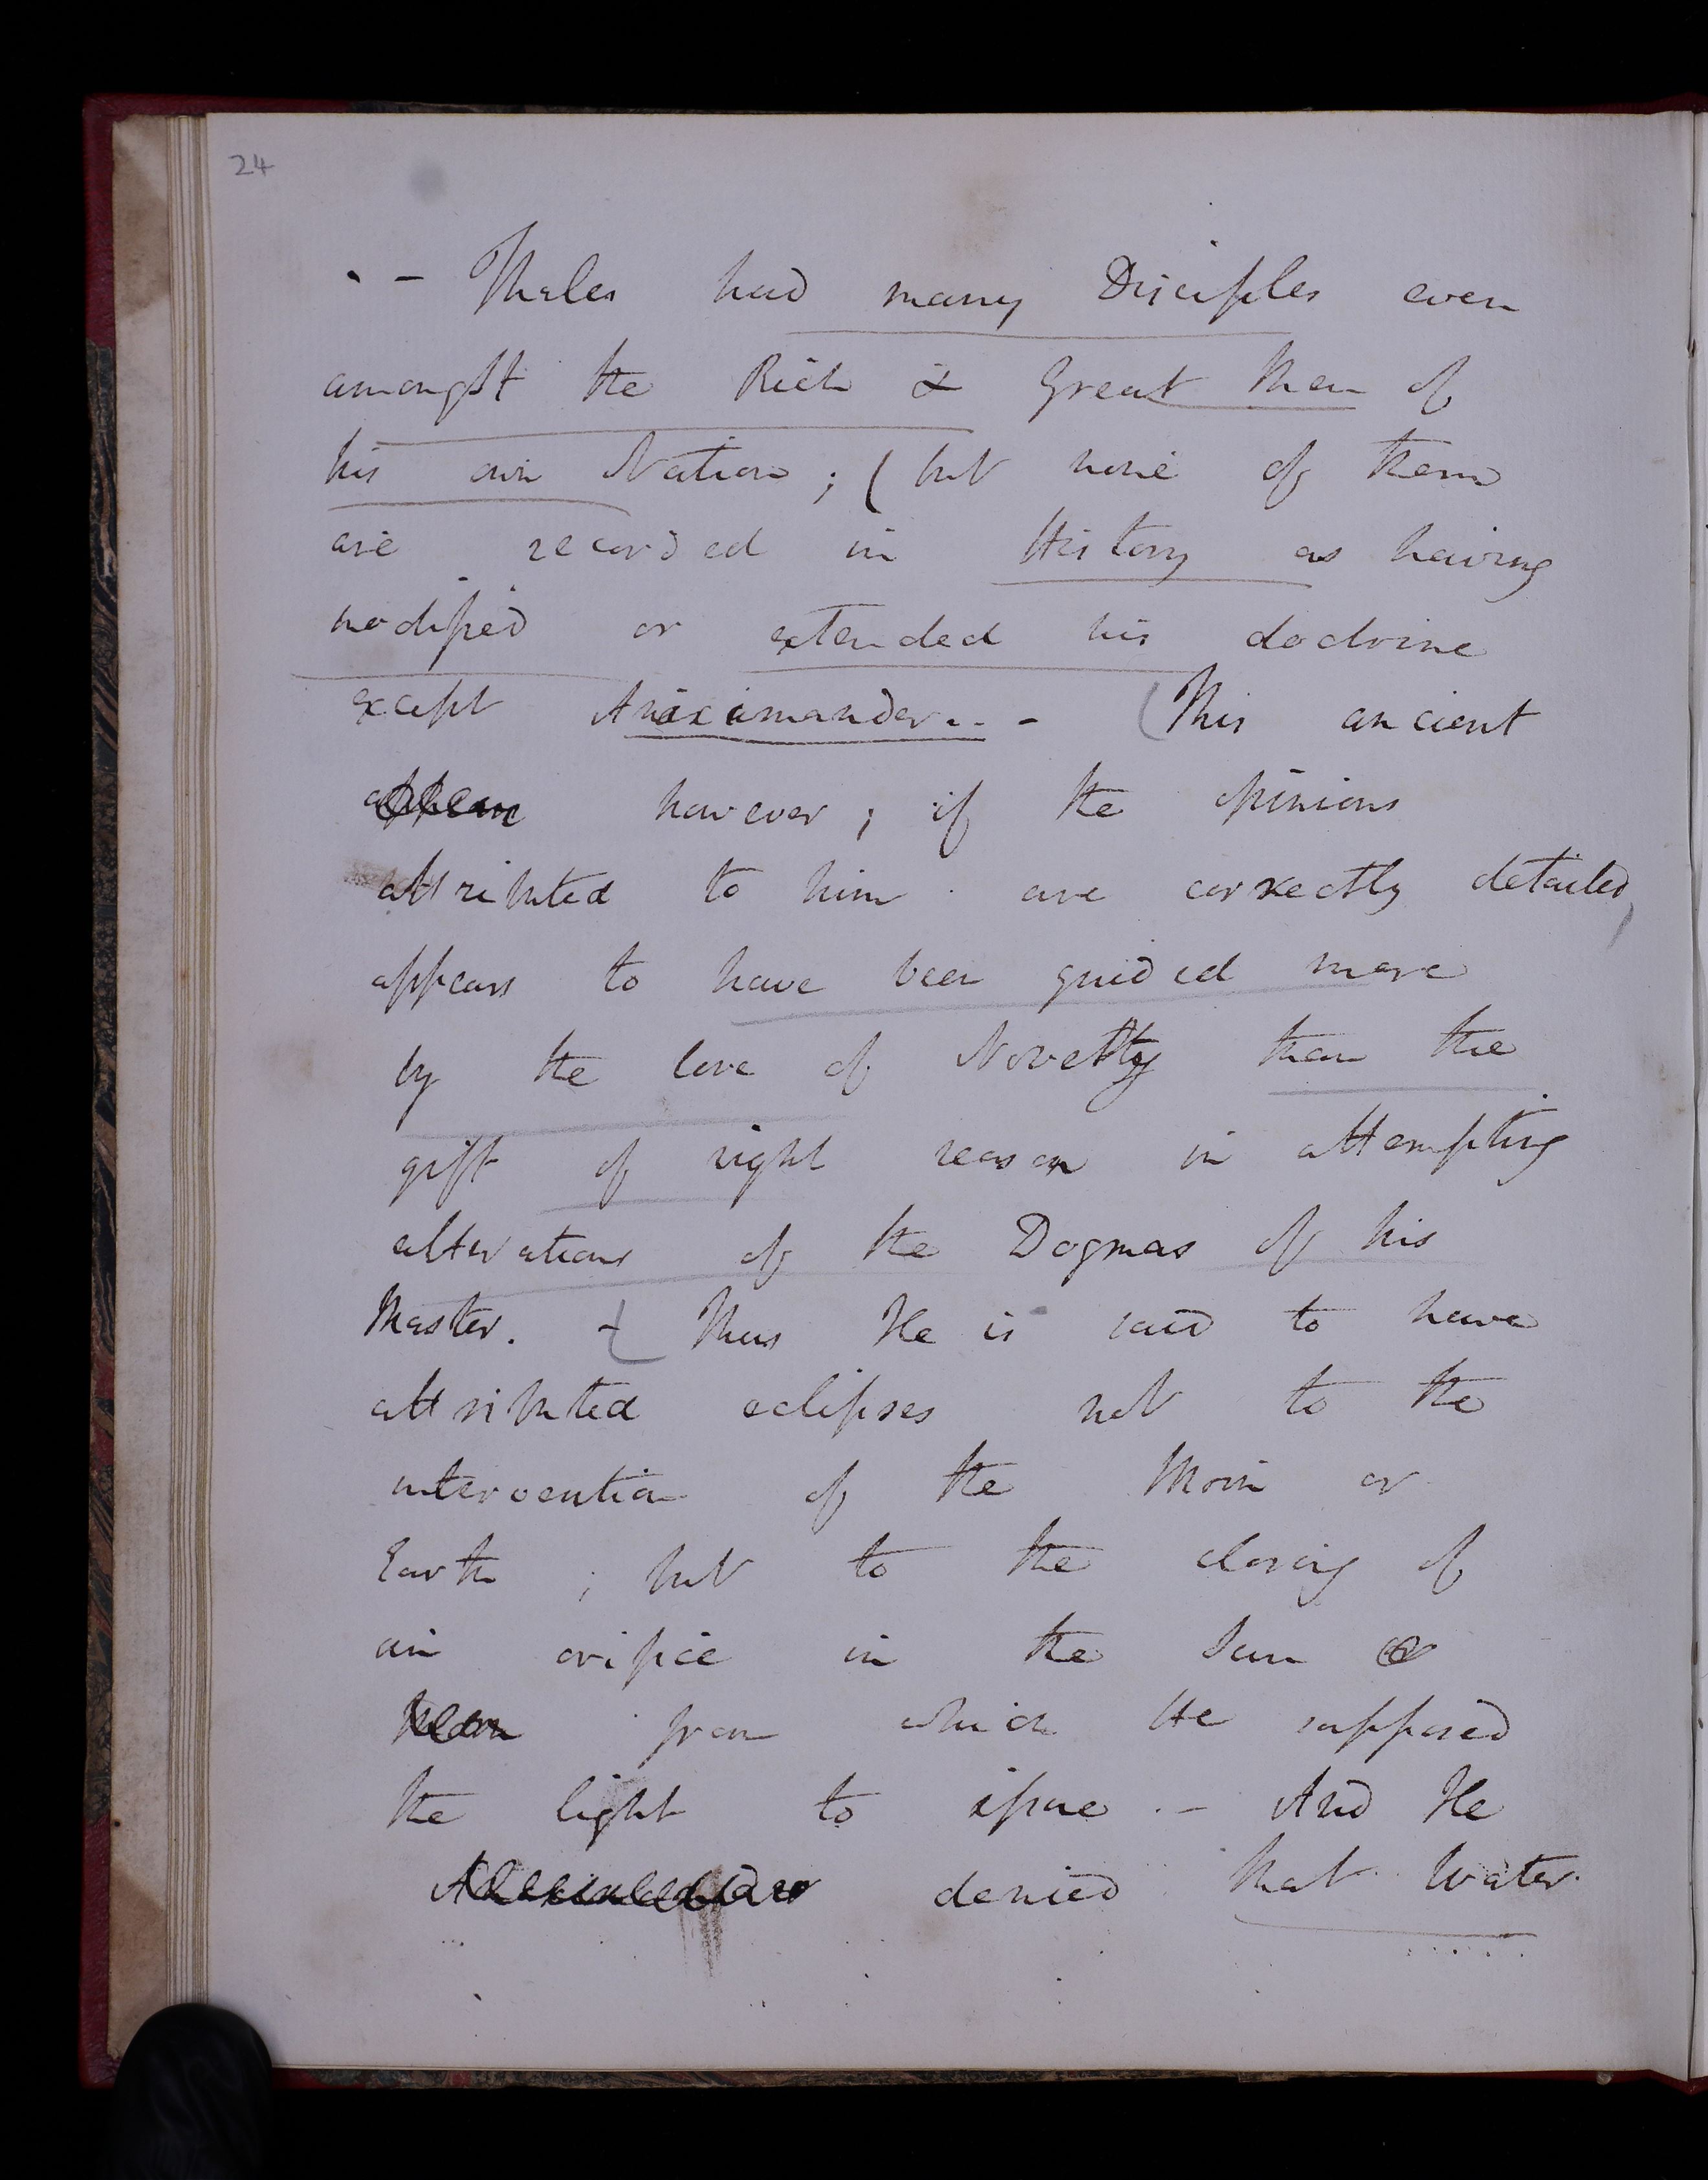 24
- Thales had many Disciples even
amongst the Rich & Great Men of
his own Nation; (but none of them
are recorded in History as having
modified or extended his doctrine
except Anaximander.. - (This ancient
however; if the opinions
attributed to him are correctly detailed,
appears to have been guided more
by the love of Novelty than the
gift of right reason in attempting
alterations of the Dogmas of his
Master. - Thus He is said to have
attributed eclipses not to the
intervention of the Moon or
Earth; but to the closing of
an orifice in the Sun
from which He supposed
the light to issue .- And He
denied that Water